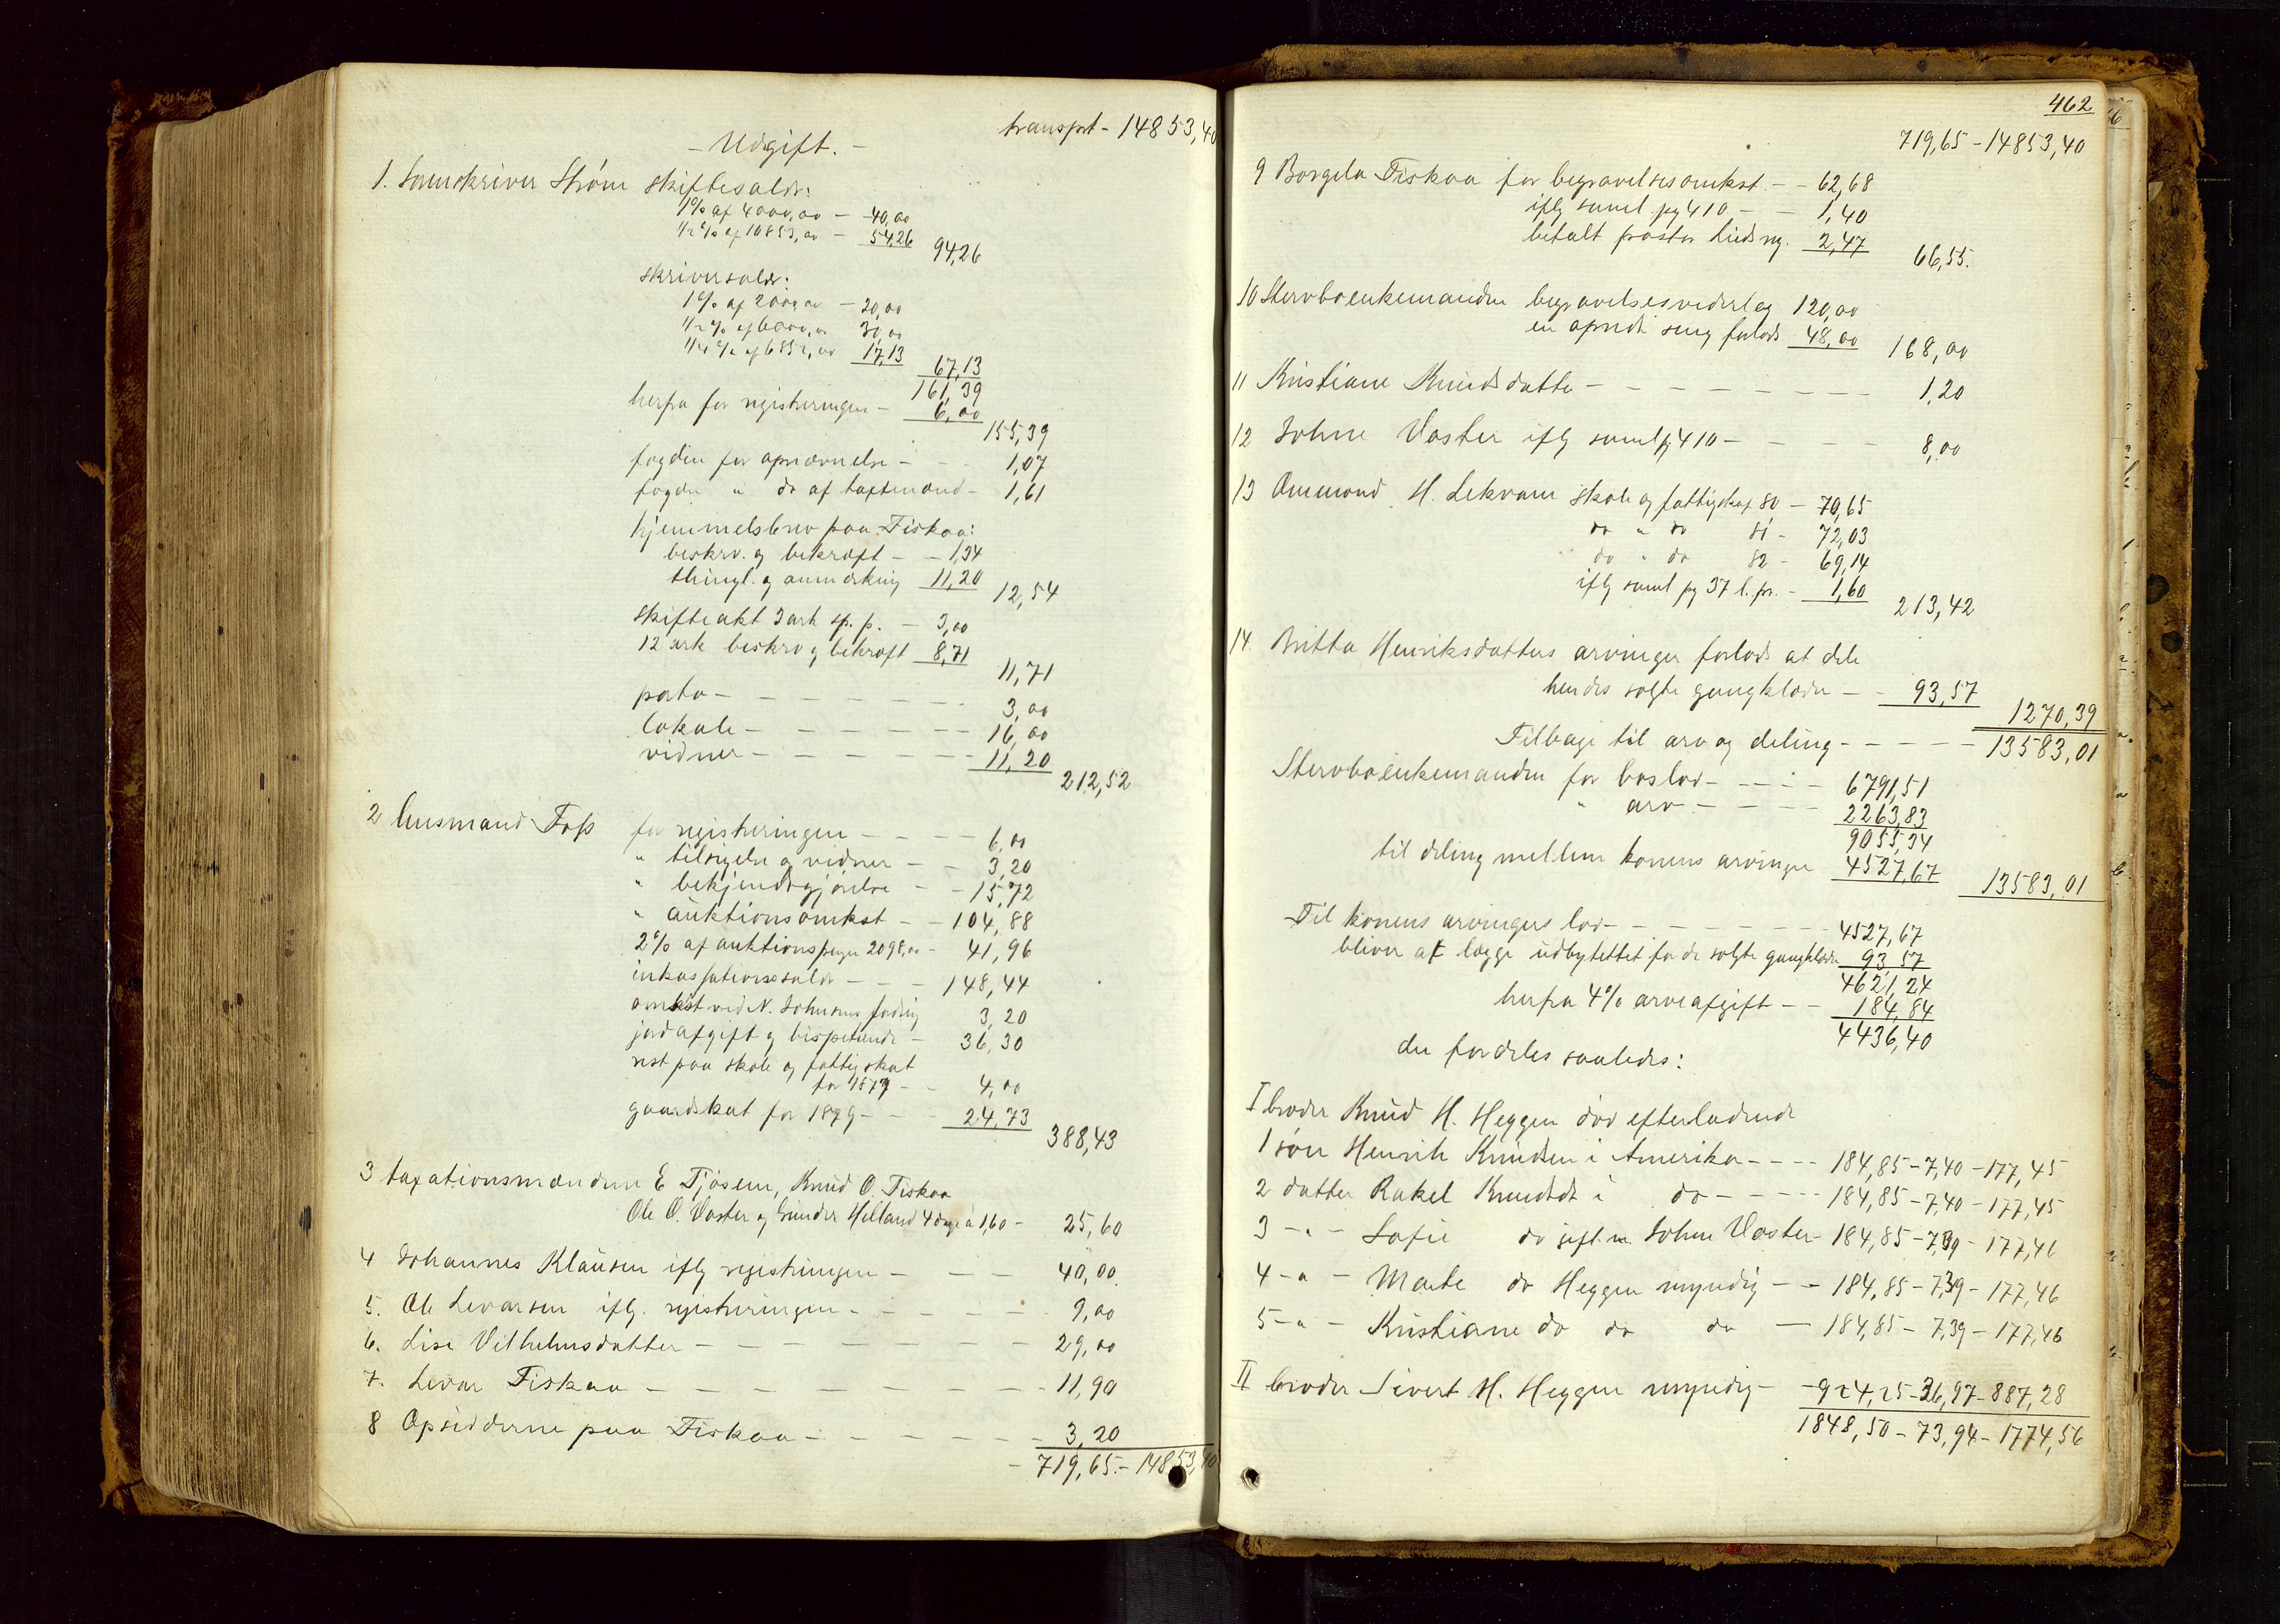 transprt - 14853,40
- Udgift. -
1. Sorenskriver Strøm skiftesalær:
1% af 4000,00 - 40,00
1/2 % af 10853,00 - 54,26 94,26
skriversalær:
1% af 2000,00 - 20,00
1/2 % af 6000,00 30,00
1/4 % af 6852,00 17,13 67,13
161,39
herfra for registreringen - 6,00 155,39
fogden for opnævnelse - - - 1,07
fogden " do af taxtmænd - 1,61
hjemmelsbrev paa Fiskaa:
beskrv. og bekræft - - 1,34
thingl. og anmærkning 11,20 12,54
skifteakt 3 ark sp. p. - 3,00
12 ark beskrv og bekræft 8,71 11,71
porto - - - - - - - 3,00
lokale - - - - - - - 16,00
vidner - - - - - - - 11,20 212,52
2 lensmand Foss for registreringen - - - - 6,00
" tilsigelse og vidner - - 3,20
" bekjendtgjørelse - - 15,72
" auktionsomkst - - 104,88
2% af auktionspenger 2098,00 - 41,96
inkassationssalær - - - 148,44
omkst ved N. Johnsens fordring 3,20
jordafgift og bispetiende - 36,30
rest paa skole og fattigskat
for 1879 - - 4,00
gaardskat for 1879 - - - 24,73 388,43
3 taxationsmændene E Tjøsem, Knud O. Fiskaa
Ole O. Vaster og Gunder Helland 4 dage à 1,60 - 25,60
4 Johannes Klausen iflg registreringen - - - 40,00
5. Ole Levarsen iflg. registreringen - - - - - 9,00
6. Lise Vilhelmsdatter - - - - - - - 29,00
7. Levar Fiskaa - - - - - - - - 11,90
8 Opsidderne paa Fiskaa - - - - - - - 3,20
- 719,65 - 14853,40
462
719,65 - 14853,40
9 Borgela Fiskaa for begravelsesomkst. - - 62,68
iflg saml. pg 410 - - 1,40
betalt prosten Lieds rg. 2,47 66,55.
10 Stervboenkemanden begravelsesvederlag 120,00
en opredt seng forlods 48,00 168,00
11 Kristiane Knudsdatter - - - - - - - - 1,20
12 Johne Vaster iflg saml pg 410 - - - - 8,00
13 Ommond H. Lekvam skole og fattigskat 80 - 70,65
do " do 81 - 72,03
do " do 82 - 69,14
iflg saml pg 37 l. pr. - 1,60 213,42
14. Britta Henriksdatters arvinger forlods at dele
hendes solgte gangklæder - - 93,57
1270,39
Tilbage til arv og deling - - - - - 13583,01
Stervboenkemanden for boslod - - - - 6791,51
" arv - - - - 2263,83
9055,34
til deling mellem konens arvinger 4527,67 13583,01
Til konens arvingers lod - - - - - - - 4527,67
bliver at lægge udbyttettet for de solgte gangklæder 93,57
4621,24
herfra 4% arveafgift - - 184,84
4436,40
der fordeles saaledes:
I broder Knud H. Heggen død efterladende
1 søn Henrik Knudsen i Amerika - - - - 184,85 - 7,40 - 177,45
2 datter Rakel Knudsdt i do - - - - - 184,85 - 7,40 - 177,45
3 - " - Sofie do gift m. Johne Vaster - 184,85 - 7,39 - 177,46
4 - " - Marte do Heggen myndig - - 184,85 - 7,39 - 177,46
5 - " - Kristiane do do do - 184,85 - 7,39 - 177,46
II broder Sivert H. Heggen myndig - - 924,25 - 36,97 - 887,28
1848,50 - 73,94 - 1774,56